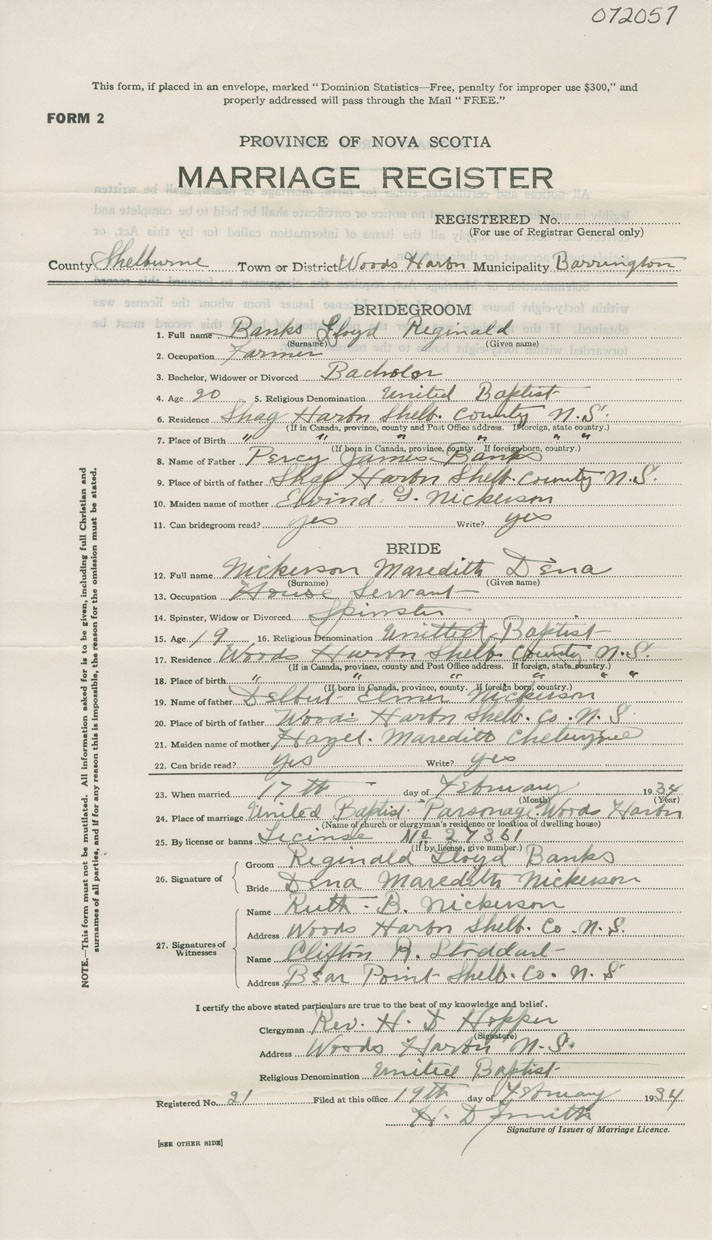 072057
This form, if placed in an envelope, marked "Dominion Statistics—Free, penalty for improper use $300," and
properly addressed will pass through the Mail "FREE."
FORM 2
PROVINCE OF NOVA SCOTIA
MARRIAGE REGISTER
REGISTERED No.
(For use of Registrar General only)
County Shelburne Town or District Woods Harbor Municipality Barrington
BRIDEGROOM
1. Full name Banks Lloyd Reginald
(Surname) (Given name)
2. Occupation Farmer
3. Bachelor, Widower or Divorced Bachelor
4. Age 20 5. Religious Denomination United Baptist
6. Residence Shag Harbor Shelb. County N.S.
(If in Canada, province, county and Post Office address. If foreign, state country.)
7. Place of Birth " " " " " "
(If born in Canada, province, county. If foreign born, country.)
8. Name of Father Percy James Banks
9. Place of birth of father Shag Harbor Shelb. County N.S.
10. Maiden name of mother G. Nickerson
11. Can bridegroom read? yes Write? yes
BRIDE
12. Full name Nickerson Maredith Dena
(Surname) (Given name)
13. Occupation House Servant
14. Spinster, Widow or Divorced Spinster
15. Age 19 16. Religious Denomination United Baptist
17. Residence Woods Harbor Shelb. County N.S.
(If in Canada, province, county and Post Office address. If foreign, state country.)
18. Place of birth " " " " "
(If born in Canada, province, county. If foreign born, country.)
19. Name of father Delbert Elmer Nickerson
20. Place of birth of father Woods Harbor Shelb. Co. N.S.
21. Maiden name of mother Hazel Maredith
22. Can bride read? yes Write? yes
23. When married 17th day of February 1934
(Month) (Year)
24. Place of marriage United Baptist Parsonage Woods Harbor
(Name of church or clergyman's residence or location of dwelling house)
25. By license or banns License No 27361
(If by license, give number.)
26. Signature of
Groom Reginald Lloyd Banks
Bride Dena Maredith Nickerson
27. Signatures of Witnesses
Name Ruth B. Nickerson
Address Woods Harbor Shelb. Co. N.S.
Name Clifton A. Stoddart
Address Bear Point Shelb. Co. N.S.
I certify the above stated particulars are true to the best of my knowledge and belief.
Clergyman Rev. H. D Hopper
(Signature)
Address Woods Harbor N.S.
Religious Denomination United Baptist
Registered No. 21 Filed at this office 19th day of February 1934
H. D Smith
Signature of Issuer of Marriage Licence.
[SEE OTHER SIDE]
NOTE.—This form must not be mutilated. All information asked for is to be given, including full Christian and
surnames of all parties, and if for any reason this is impossible, the reason for the omission must be stated.